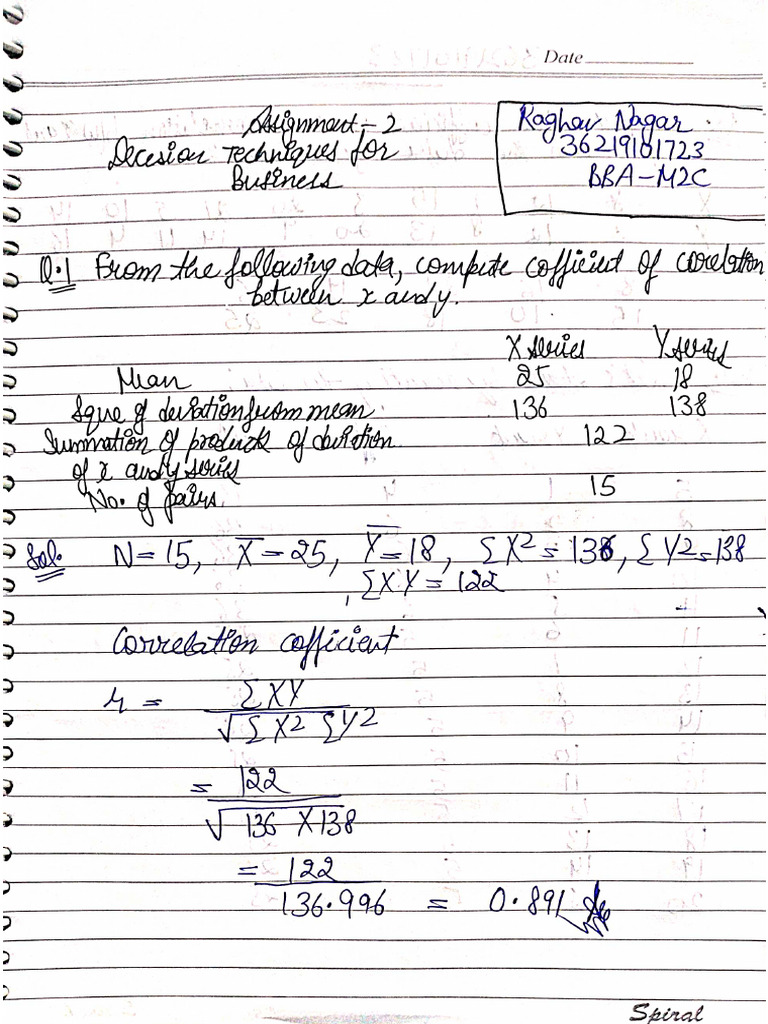 Date
Assignment - 2
Decesion Techniques for
Business
Raghav Nagar
36219101723
BBA-M2C
Q.1 From the following data, compute cofficient of corelation
between x and y.
X series Y series
Mean 25 18
Sque of deviation from mean 136 138
Summation of product of deviation 122
of x and y series
No. of pairs 15
Sol. N = 15, X̅ = 25, Y̅ = 18, ΣX² = 136, ΣY² = 138
, ΣXY = 122
Correlation cofficient
r = ΣXY
√ΣX² ΣY²
= 122
√136 X 138
= 122
136.996 = 0.891
Spiral